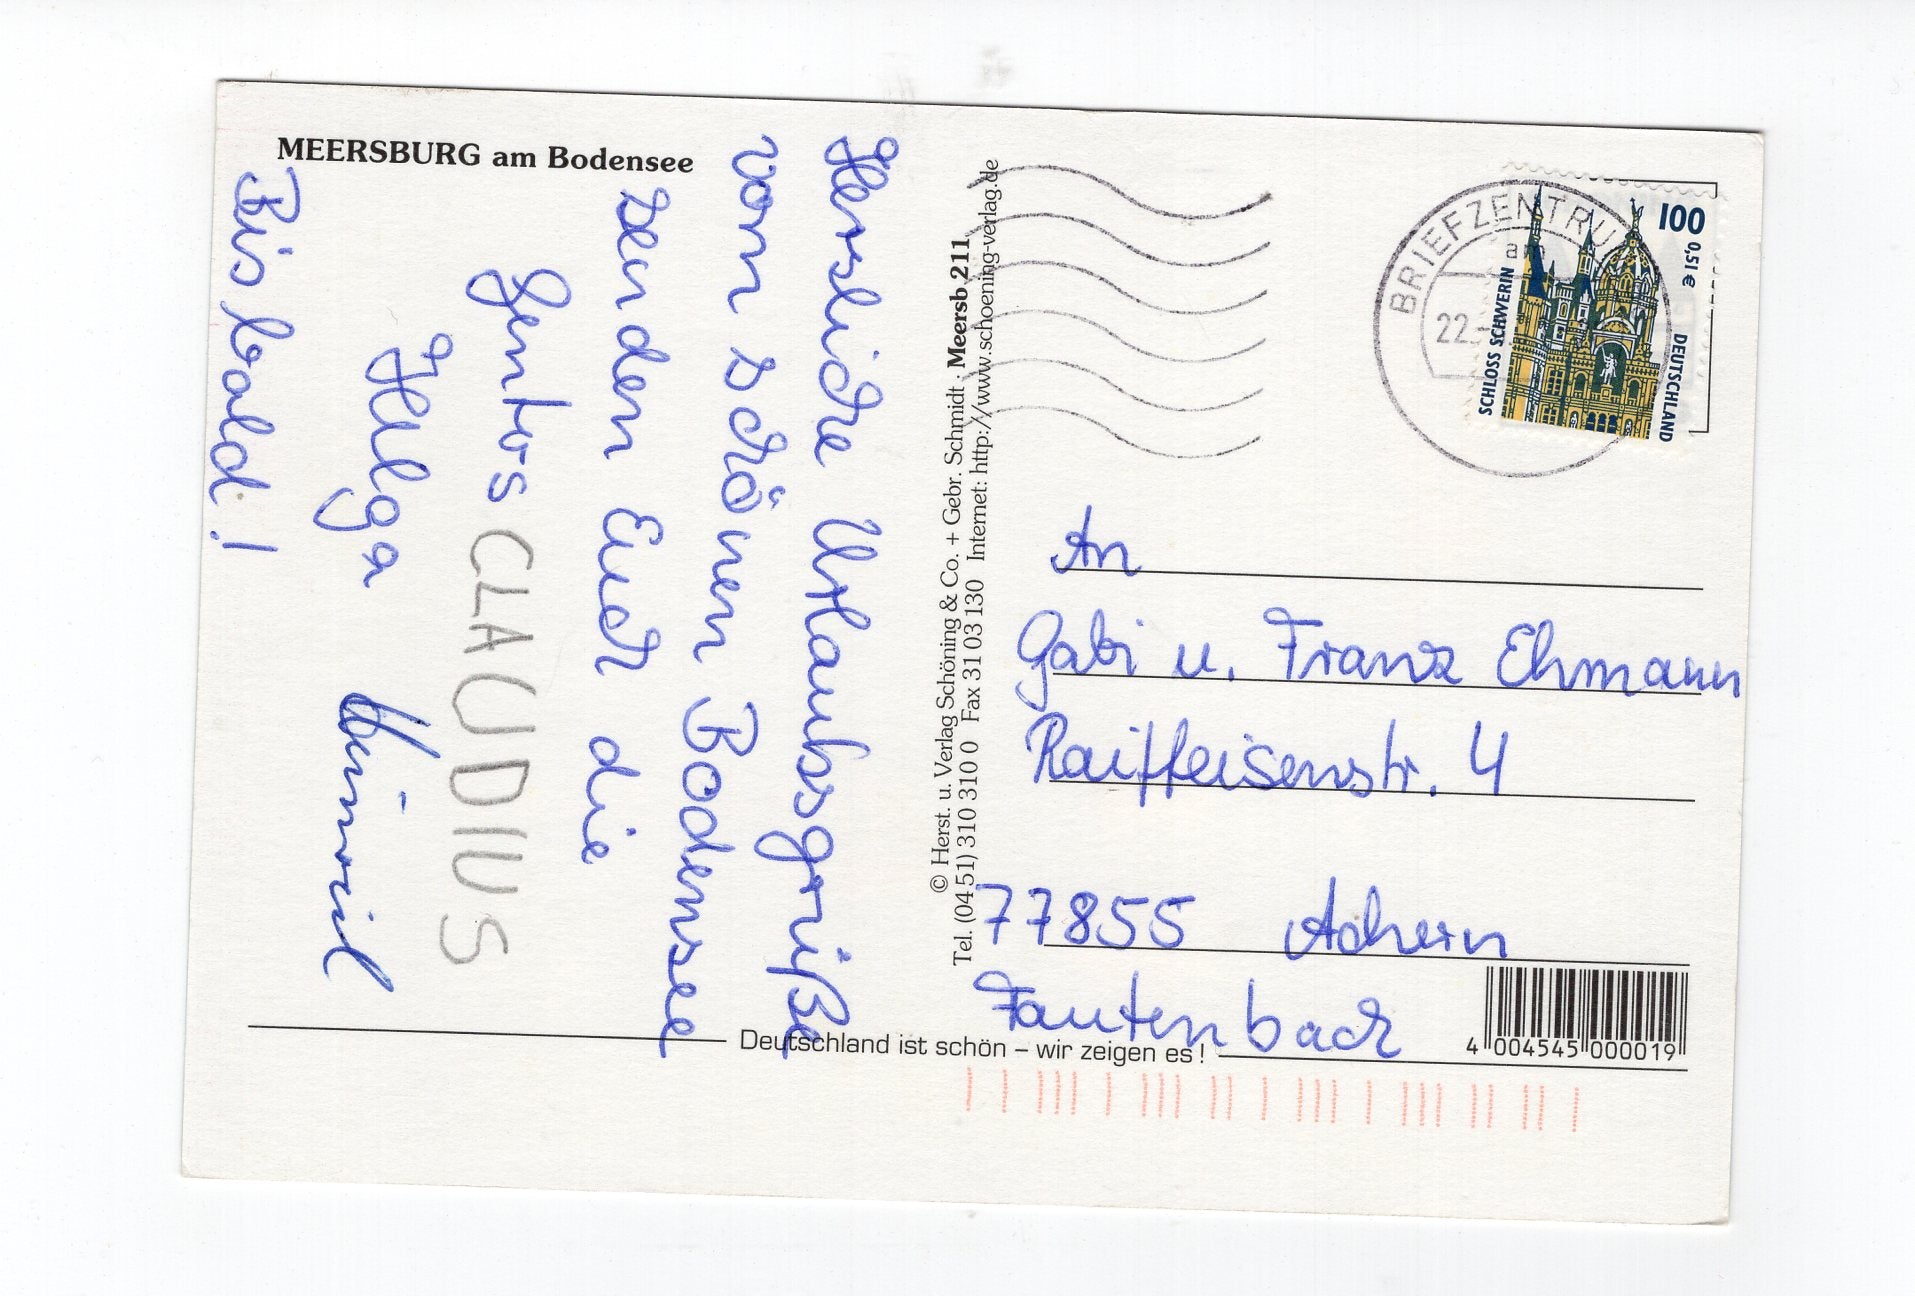 MEERSBURG am Bodensee
Herzliche Urlaubsgrüße
vom schönen Bodensee
senden Euch die
Gentes CLAUDIUS
Helga
Bis bald !
© Herst. u. Verlag Schöning & Co. + Gebr. Schmidt · Meersb 211
Tel. (04 51) 310 310 0 Fax 31 03 130 Internet: http://www.schoening-verlag.de
BRIEFZENTRU
22.
100
0,51 €
DEUTSCHLAND
SCHLOSS SCHWERIN
An
Gabi u. Franz Ehmann
Raiffeisenstr. 4
77855 Achern
Fautenbach
4 004545 000019
Deutschland ist schön – wir zeigen es !